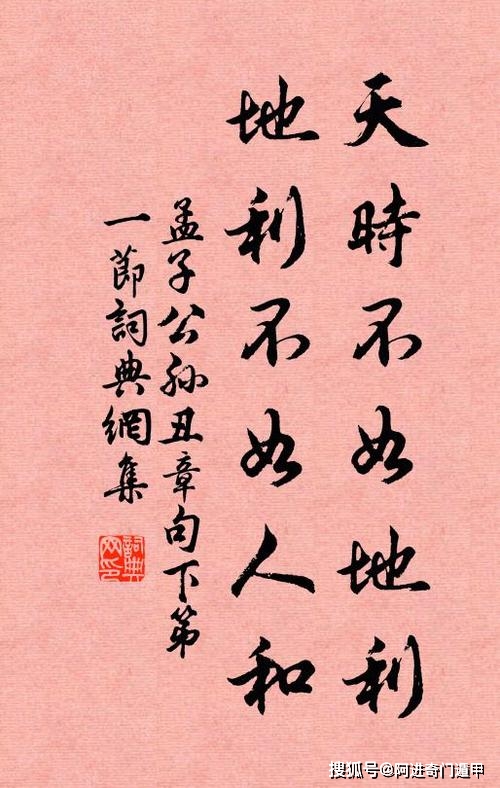 天時不如地利
地利不如人和
孟子公孫丑章句下第
一節詞典網集
詞典网印
搜狐号@阿进奇门遁甲